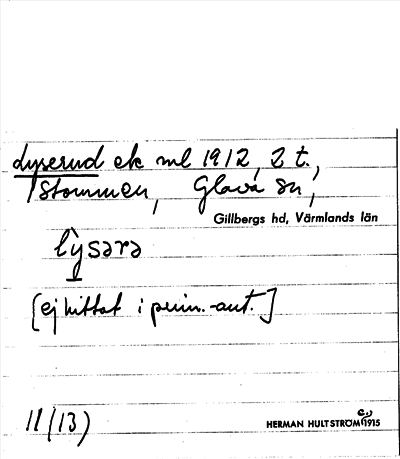 Lyserud ek ml 1912, 2 t.,
Stommen, Glava sn,
Gillbergs hd, Värmlands län
lỳsərə
[ej hittat i prim.-ant.]
11(13)
HERMAN HULTSTRÖM 1915